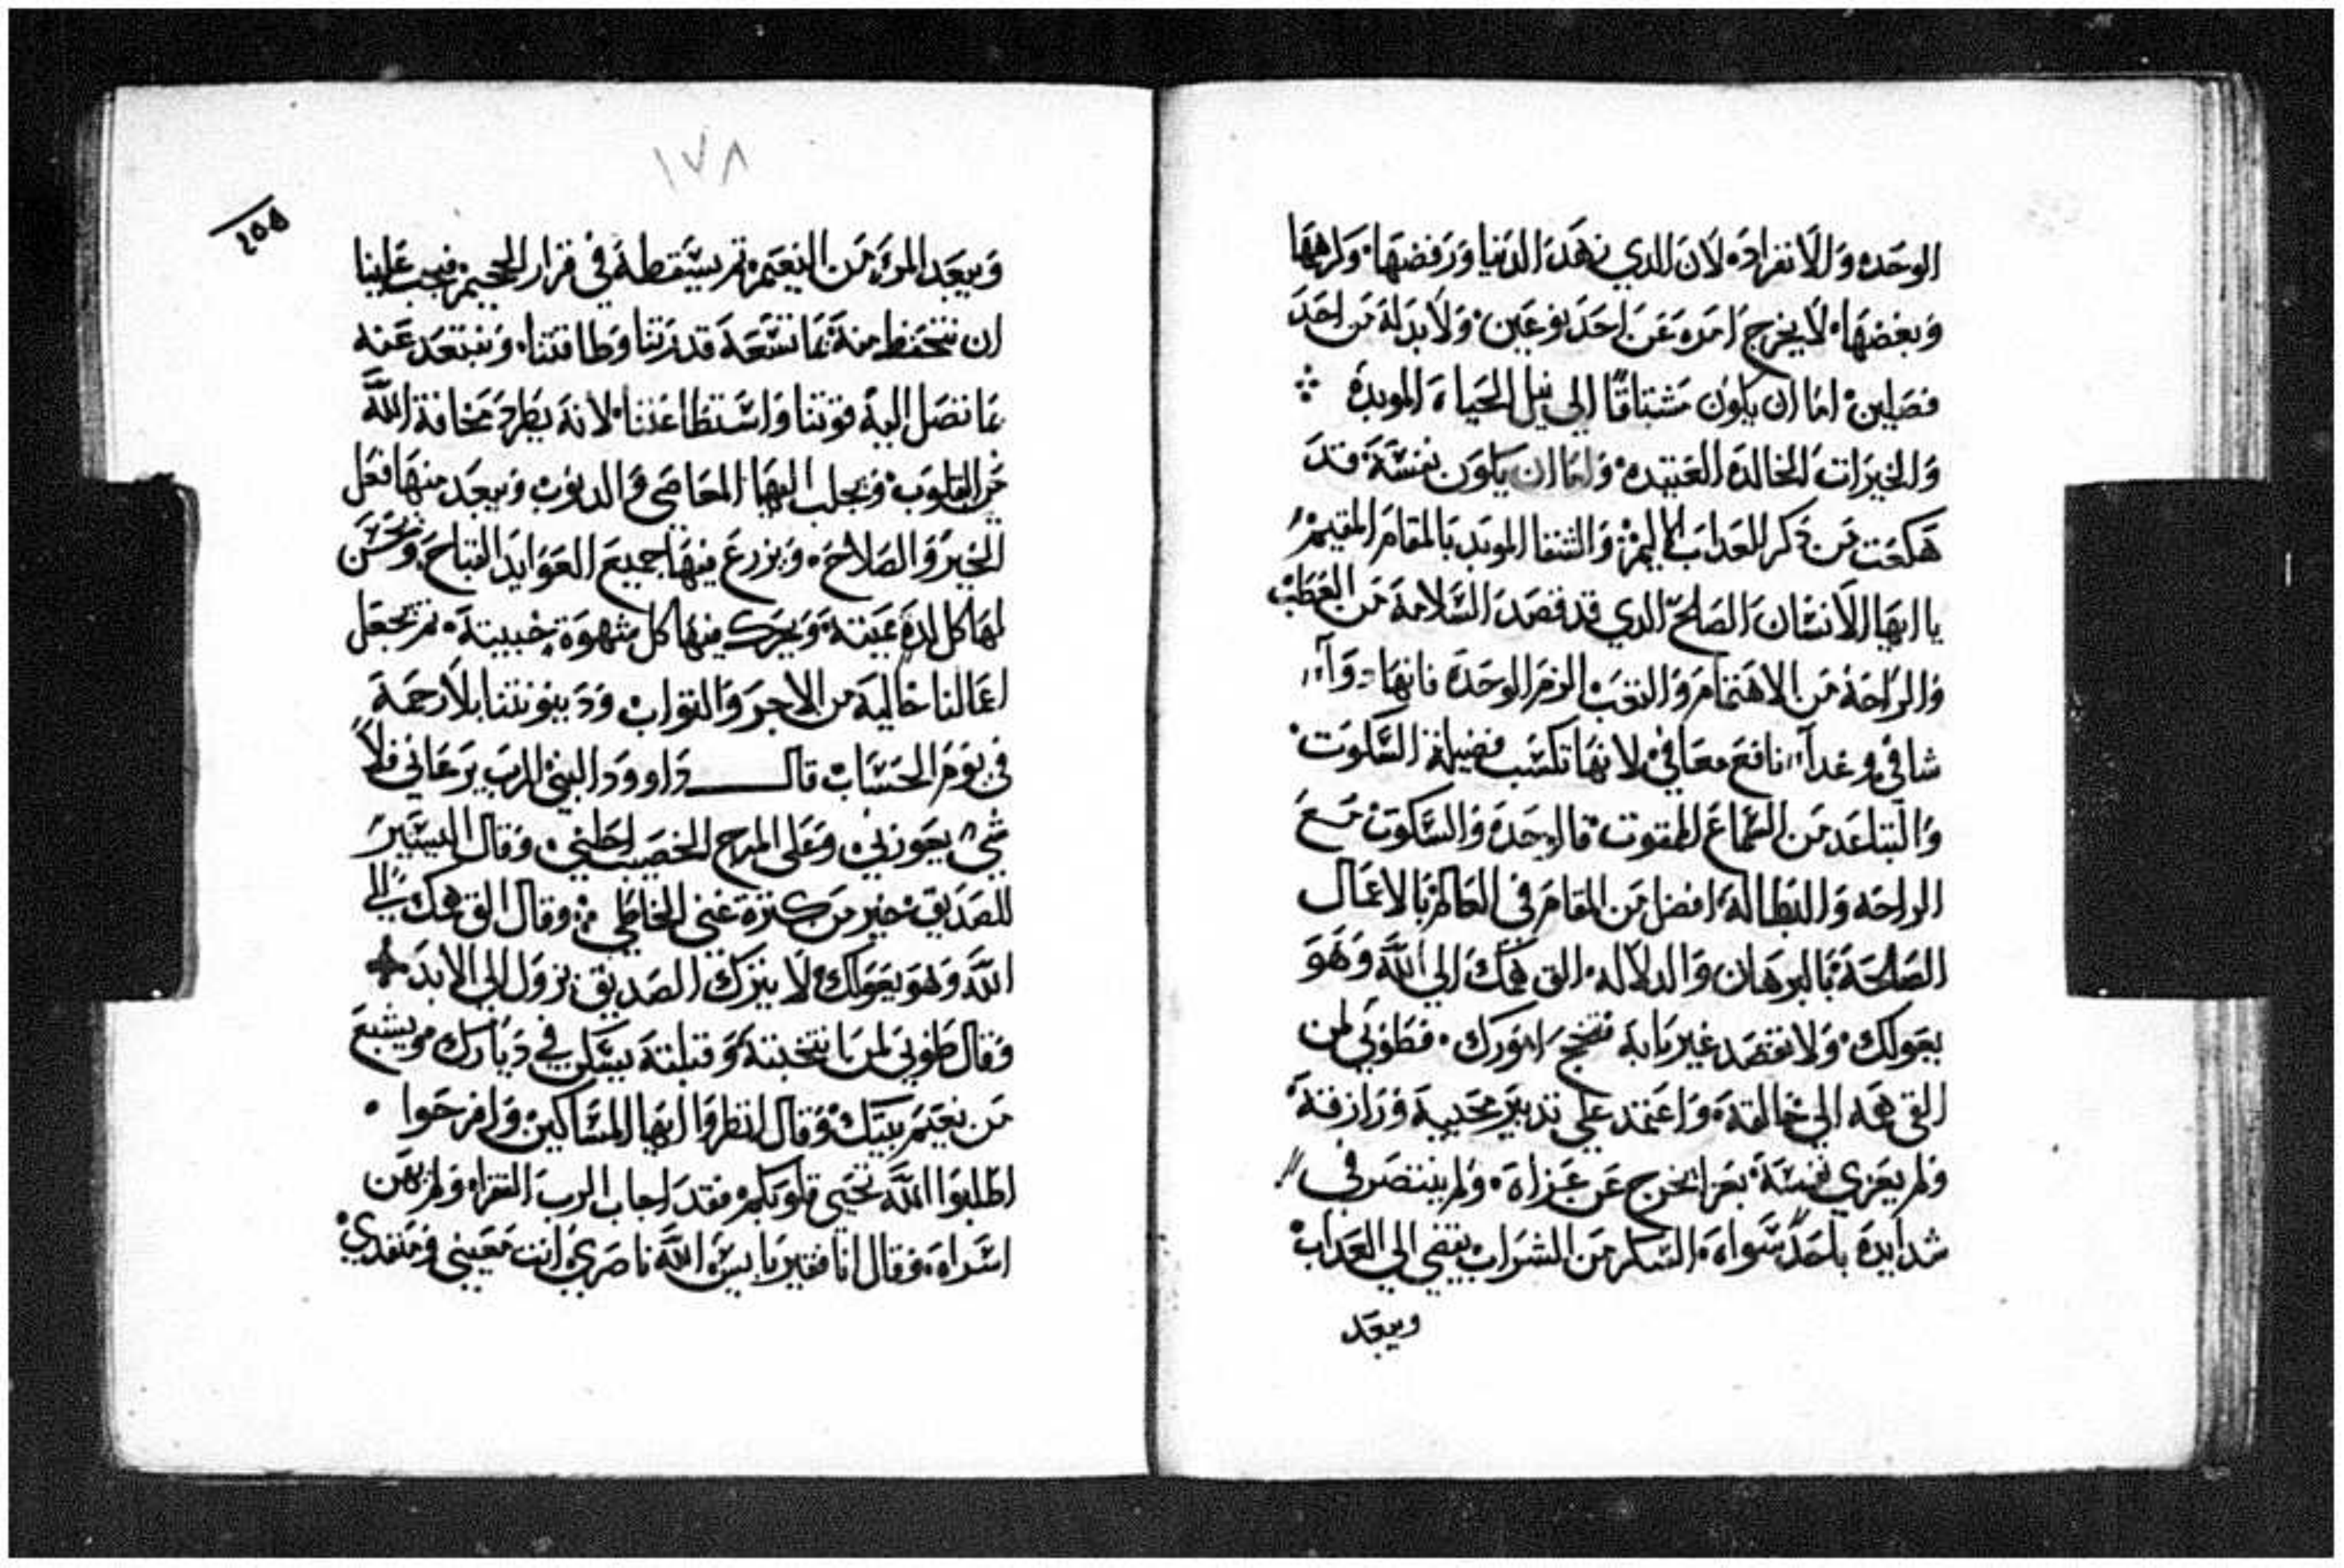 الوحده والانفراده لان الدي زهد الدنيا ورفضها ولرهها
وبغضها لا يخرج امره عن احد نوعين ولا بد له من احد
فصلين اما ان يكون مشتاقًا الي نيل الحياه الموبده
والخيرات الخالده العتيده واما ان يكون نفسه قد
هكعت من دكر العداب الاليم والشقا الموبد بالمقام المقيم
يا ايها الانسان الصالح الدي قد قصد السلامة من العطب
والراحة من الاهتمام والتعب الزم الوحده فانها دوآ
شافي وغدآ نافع معافي لانها تكسب فضيلة السكوت
والتباعد من السماع الممقوت فالوحدة والسكوت مع
الراحه والبطاله افضل من المقام في العالم بالاعمال
الصالحة بالبرهان والدلاله الق همك الي الله وهو
يعولك ولا تقصد غير بابه فتنجح امورك فطوبي لمن
القي همه الي خالقه واعتمد علي تدبير محييه ورازقه
ولم يعزي نفسه بعزا يخرج عن عزاه ولم ينتصر في
شدايده باحدًا سواه السكر من الشراب ينفي الي العداب
ويبعد
١٧٨
٢٥٥
ويبعد المرء من النعيم ثم يسقطه في قرار الجحيم فيجب علينا
ان نتحفظ منه بما تسعه قدرتنا وطاقتنا ونبتعد عنه
بما تصل اليه قوتنا واستطاعتنا لانه يطرد مخافة الله
من القلوب ويجلب اليها المعاصي والدنوب ويبعد منها فعل
الخير والصلاح ويزرع فيها جميع العوايد القباح ويحسن
لها كل لدة عيته ويحرك فيها كل شهوة خبيته ثم يجعل
اعمالنا خالية من الاجر والتواب ودينونتنا بلا رحمة
في يوم الحساب قال داوود النبي الرب يرعاني فلا
شي يعوزني وعلي المرج الخصيب احلني وقال اليسير
للصديق خير من كترة غني الخاطي وقال الق همك الي
الله وهو يعولك لا يترك الصديق يزول الي الابد
وقال طوبي لمن انتخبته وقبلته يسكن في ديارك ويشبع
من نعيم بيتك وقال انظروا ايها المساكين وافرحوا
اطلبوا الله تحيي قلوبكم فقد اجاب الرب الفقرا ولم يهن
اسراه وقال انا فقير بايس الله ناصري انت معيني ومنقدي